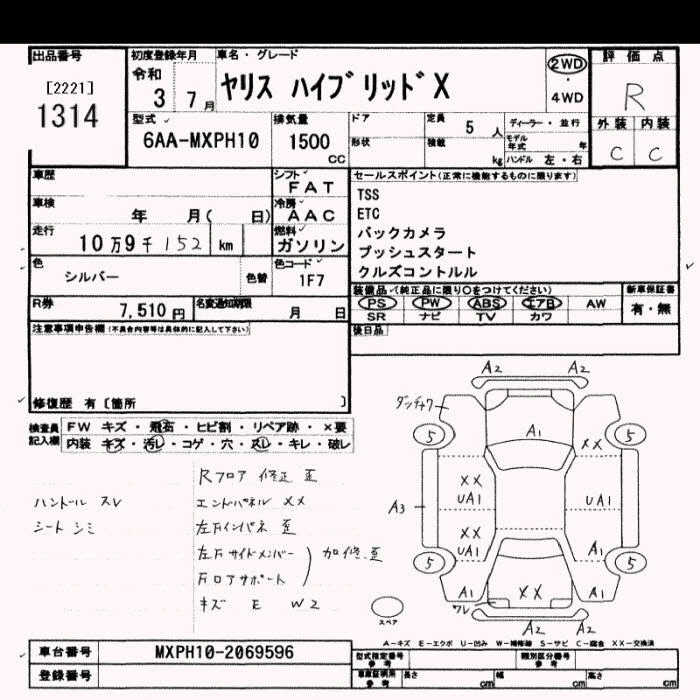 出品番号
[2221]
1314
初度登録年月
令和
3 7月
車名・グレード
ヤリス ハイブリッドX
2WD
・
4WD
評価点
R
外装 内装
C C
型式
6AA-MXPH10
排気量
1500
CC
ドア
形状
定員 5 人
積載 kg
ディーラー・並行
モデル年式 年
ハンドル 左・右
車歴
車検 年 月( 日)
走行 10万9千152 km
色 シルバー 色替
シフト
FAT
冷房
AAC
燃料
ガソリン
色コード
1F7
セールスポイント(正常に機能するものに限ります)
TSS
ETC
バックカメラ
プッシュスタート
クルズコントルル
R券 7,510円
名変通知期限 月 日
装備品(純正品に限り○をつけてください)
PS PW ABS エアB AW
SR ナビ TV カワ
新車保証書
有・無
後日品
注意事項申告欄(不具合内容等は具体的に記入して下さい)
修復歴 有〔箇所 〕
検査員記入欄
FW キズ・飛石・ヒビ割・リペア跡・×要
内装 キズ・汚レ・コゲ・穴・スレ・キレ・破レ
ハンドル スレ
シート シミ
Rフロア 修正 歪
エンドパネル XX
左Rインパネ 歪
左Rサイドメンバー
Rロアサポート
加修.歪
キズ E W2
A2 A2
ダンチ
5 A1 5
XX
XX
UA1 UA1
A3
XX
UA1 A1
5 5
A1 XX A1
ワレ
A2 A2
スペア
A-キズ E-エクボ U-凹み W-補修跡 S-サビ C-腐食 XX-交換済
車台番号 MXPH10-2069596
登録番号
型式指定番号
参考
類別区分番号
参考
車庫証明用
参考
長さ cm 幅 cm 高さ cm